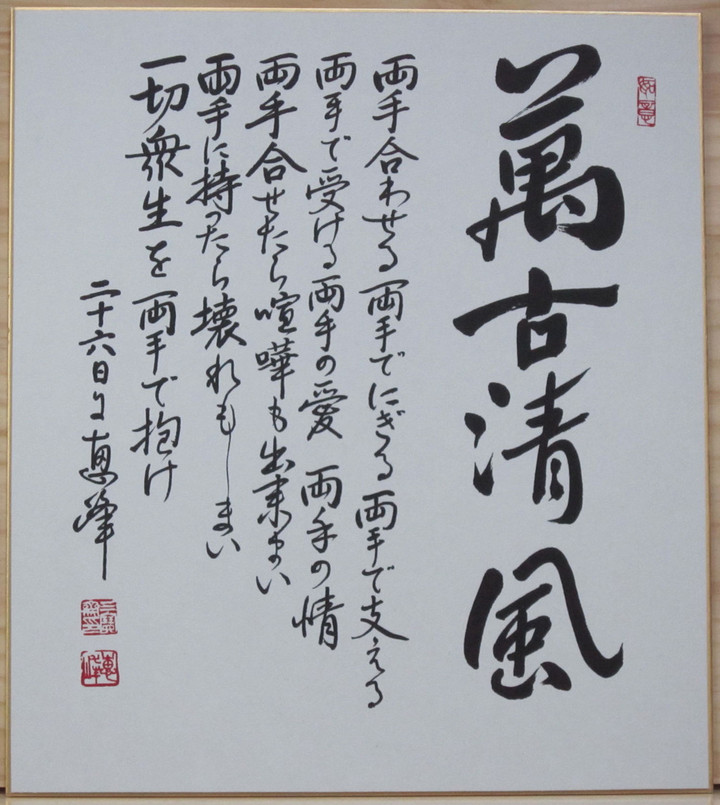 萬古清風
両手合わせる両手でにぎる両手で支える
両手で受ける両手の愛 両手の情
両手合せたら喧嘩も出来まい
両手に持ったら壊れもしまい
一切衆生を両手で抱け
二十六日 恵峰